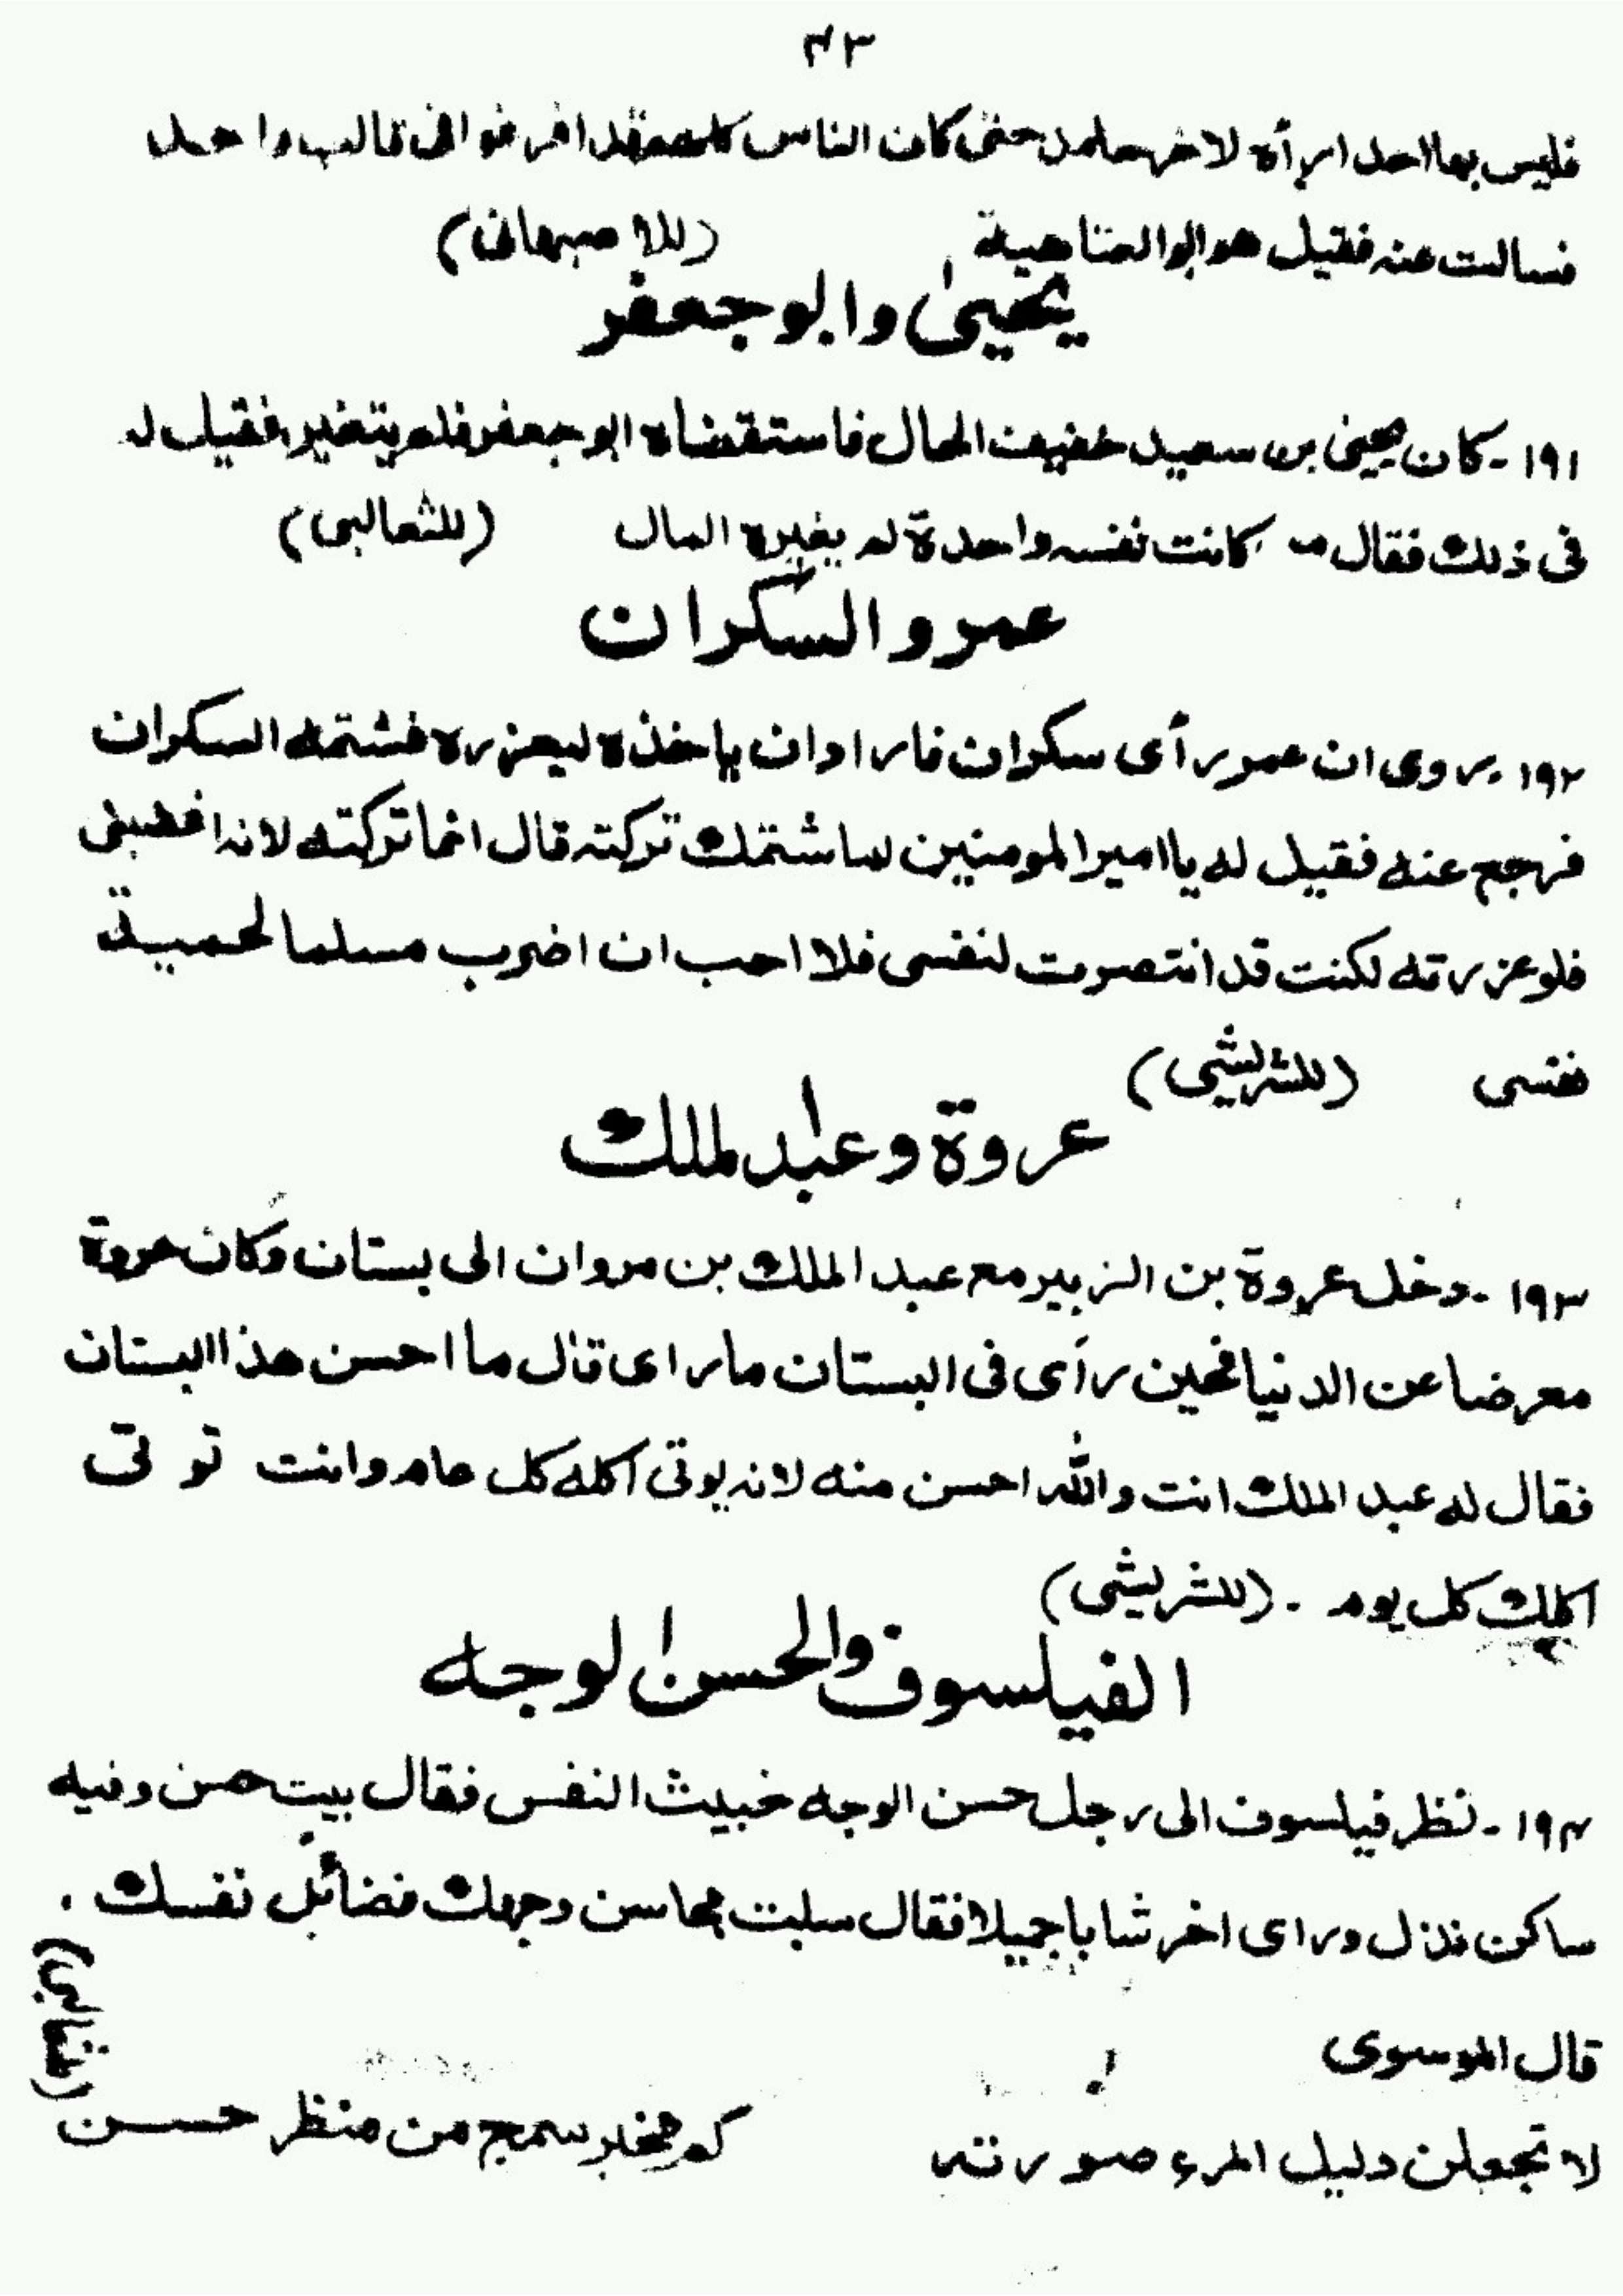 ٤٣
فليس بها احد امرأة لاخر حامد حتى كان الناس كلهم قد افرغوا فى قالب واحد
فسالت عنه فقيل هو ابوالعتاهية (للاصبهانى)
يحيىٰ وابوجعفر
١٩١ - كان يحيىٰ بن سعيد خفيف الحال فاستقضاه ابوجعفر فلم يتغير فقيل له
فى ذلك فقال من كانت نفسه واحدة لم يغيره المال (للثعالبى)
عمر والسكران
١٩٢ - روى ان عمر رأى سكران فاراد ان ياخذه ليعزره فشتمه السكران
فرجع عنه فقيل له يا امير المومنين لما شتمك تركته قال انما تركته لانه اغضبنى
فلو عزرته لكنت قد انتصرت لنفسى فلا احب ان اضرب مسلما لحمية
نفسى (للشريشى)
عروة وعبدالملك
١٩٣ - دخل عروة بن الزبير مع عبد الملك بن مروان الى بستان وكان عروة
معرضا عن الدنيا فحين رأى فى البستان ما راى قال ما احسن هذا البستان
فقال له عبد الملك انت والله احسن منه لانه يوتى اكله كل عام وانت توتى
اكلك كل يوم . (للشريشى)
الفيلسوف والحسن الوجه
١٩٤ - نظر فيلسوف الى رجل حسن الوجه خبيث النفس فقال بيت حسن وفيه
ساكن نذل وراى اخر شابا جميلا فقال سلبت محاسن وجهك فضائل نفسك .
(للثعالبى)
قال الموسوى
لا تجعلن دليل المرء صورته كم مخبر سمج من منظر حسن